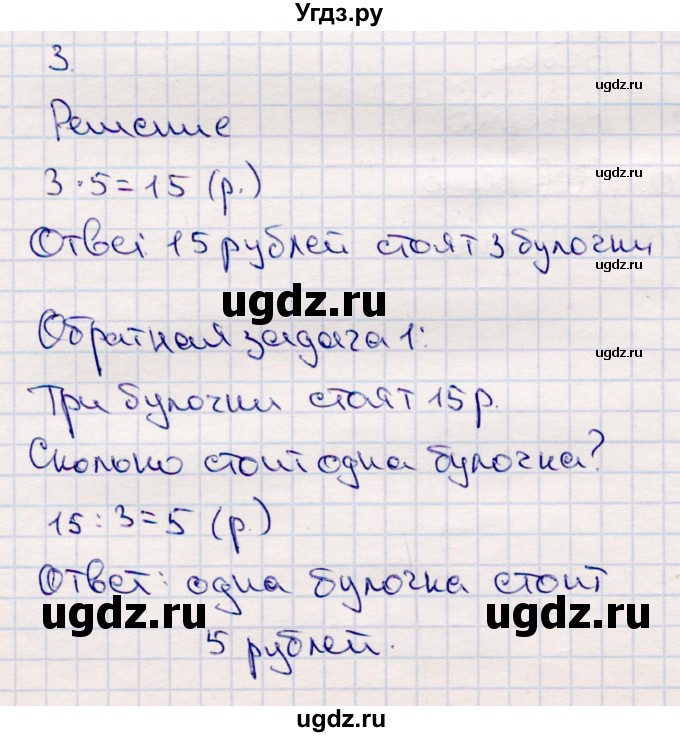 Угдз.ру
ugdz.ru
3.
ugdz.ru
Решение
ugdz.ru
3·5=15 (р.)
Ответ 15 рублей стоят 3 булочки
ugdz.ru
ugdz.ru
Обратная задача 1:
ugdz.ru
Три булочки стоят 15 р.
Сколько стоит одна булочка?
ugdz.ru
15:3=5 (р.)
Ответ: одна булочка стоит
ugdz.ru ugdz.ru
5 рублей.
ugdz.ru